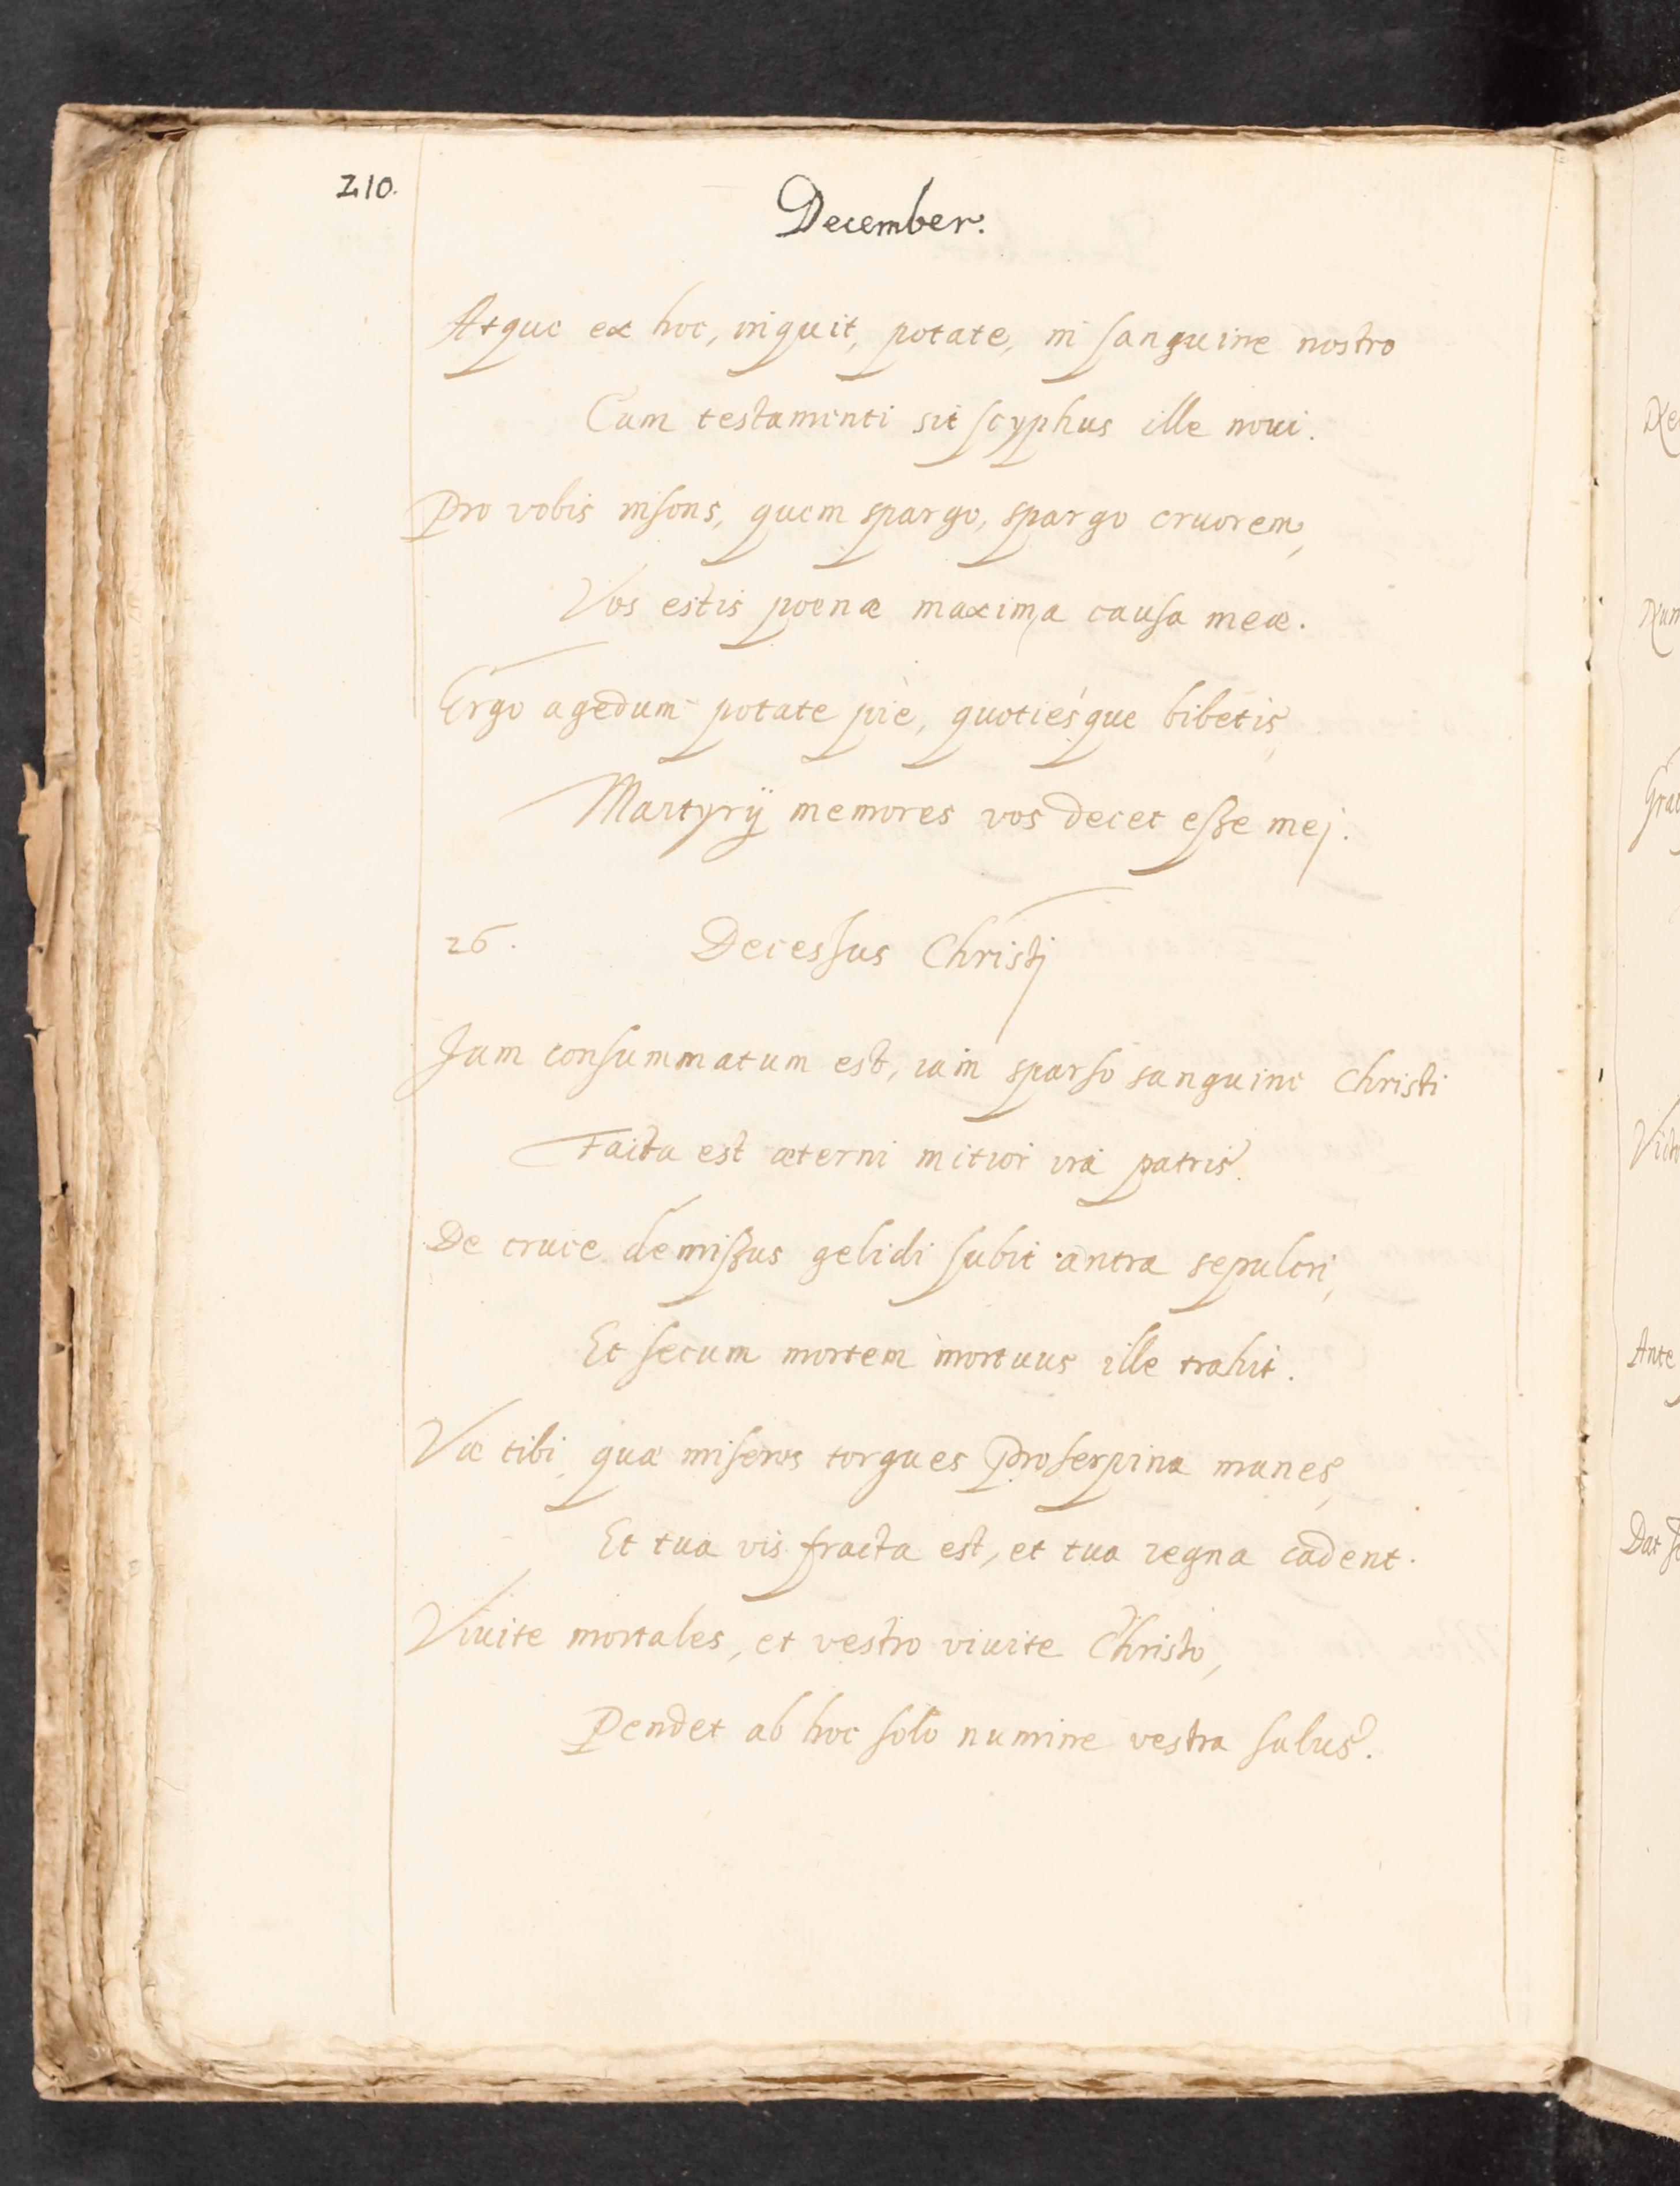 210.
December.
Atque ex hoc, inquit, potate, in sanguine nostro
Cum testamenti sit scyphus ille noui.
Pro vobis insons, quem spargo, spargo cruorem,
Vos estis poenæ maxima causa meæ.
Ergo agedum potate piè, quotiésque bibetis,
Martyrij memores vos decet esse mej.
26. Decessus Christj
Jam consummatum est, iam sparso sanguine Christi
Facta est æterni mitior ira patris.
De cruce demissus gelidi subit antra sepulcri,
Et secum mortem mortuus ille trahit.
Væ tibi, quæ miseros torques Proserpina manes,
Et tua vis fracta est, et tua regna cadent.
Viuite mortales, et vestro viuite Christo,
Pendet ab hoc solo numine vestra salus.
Ante